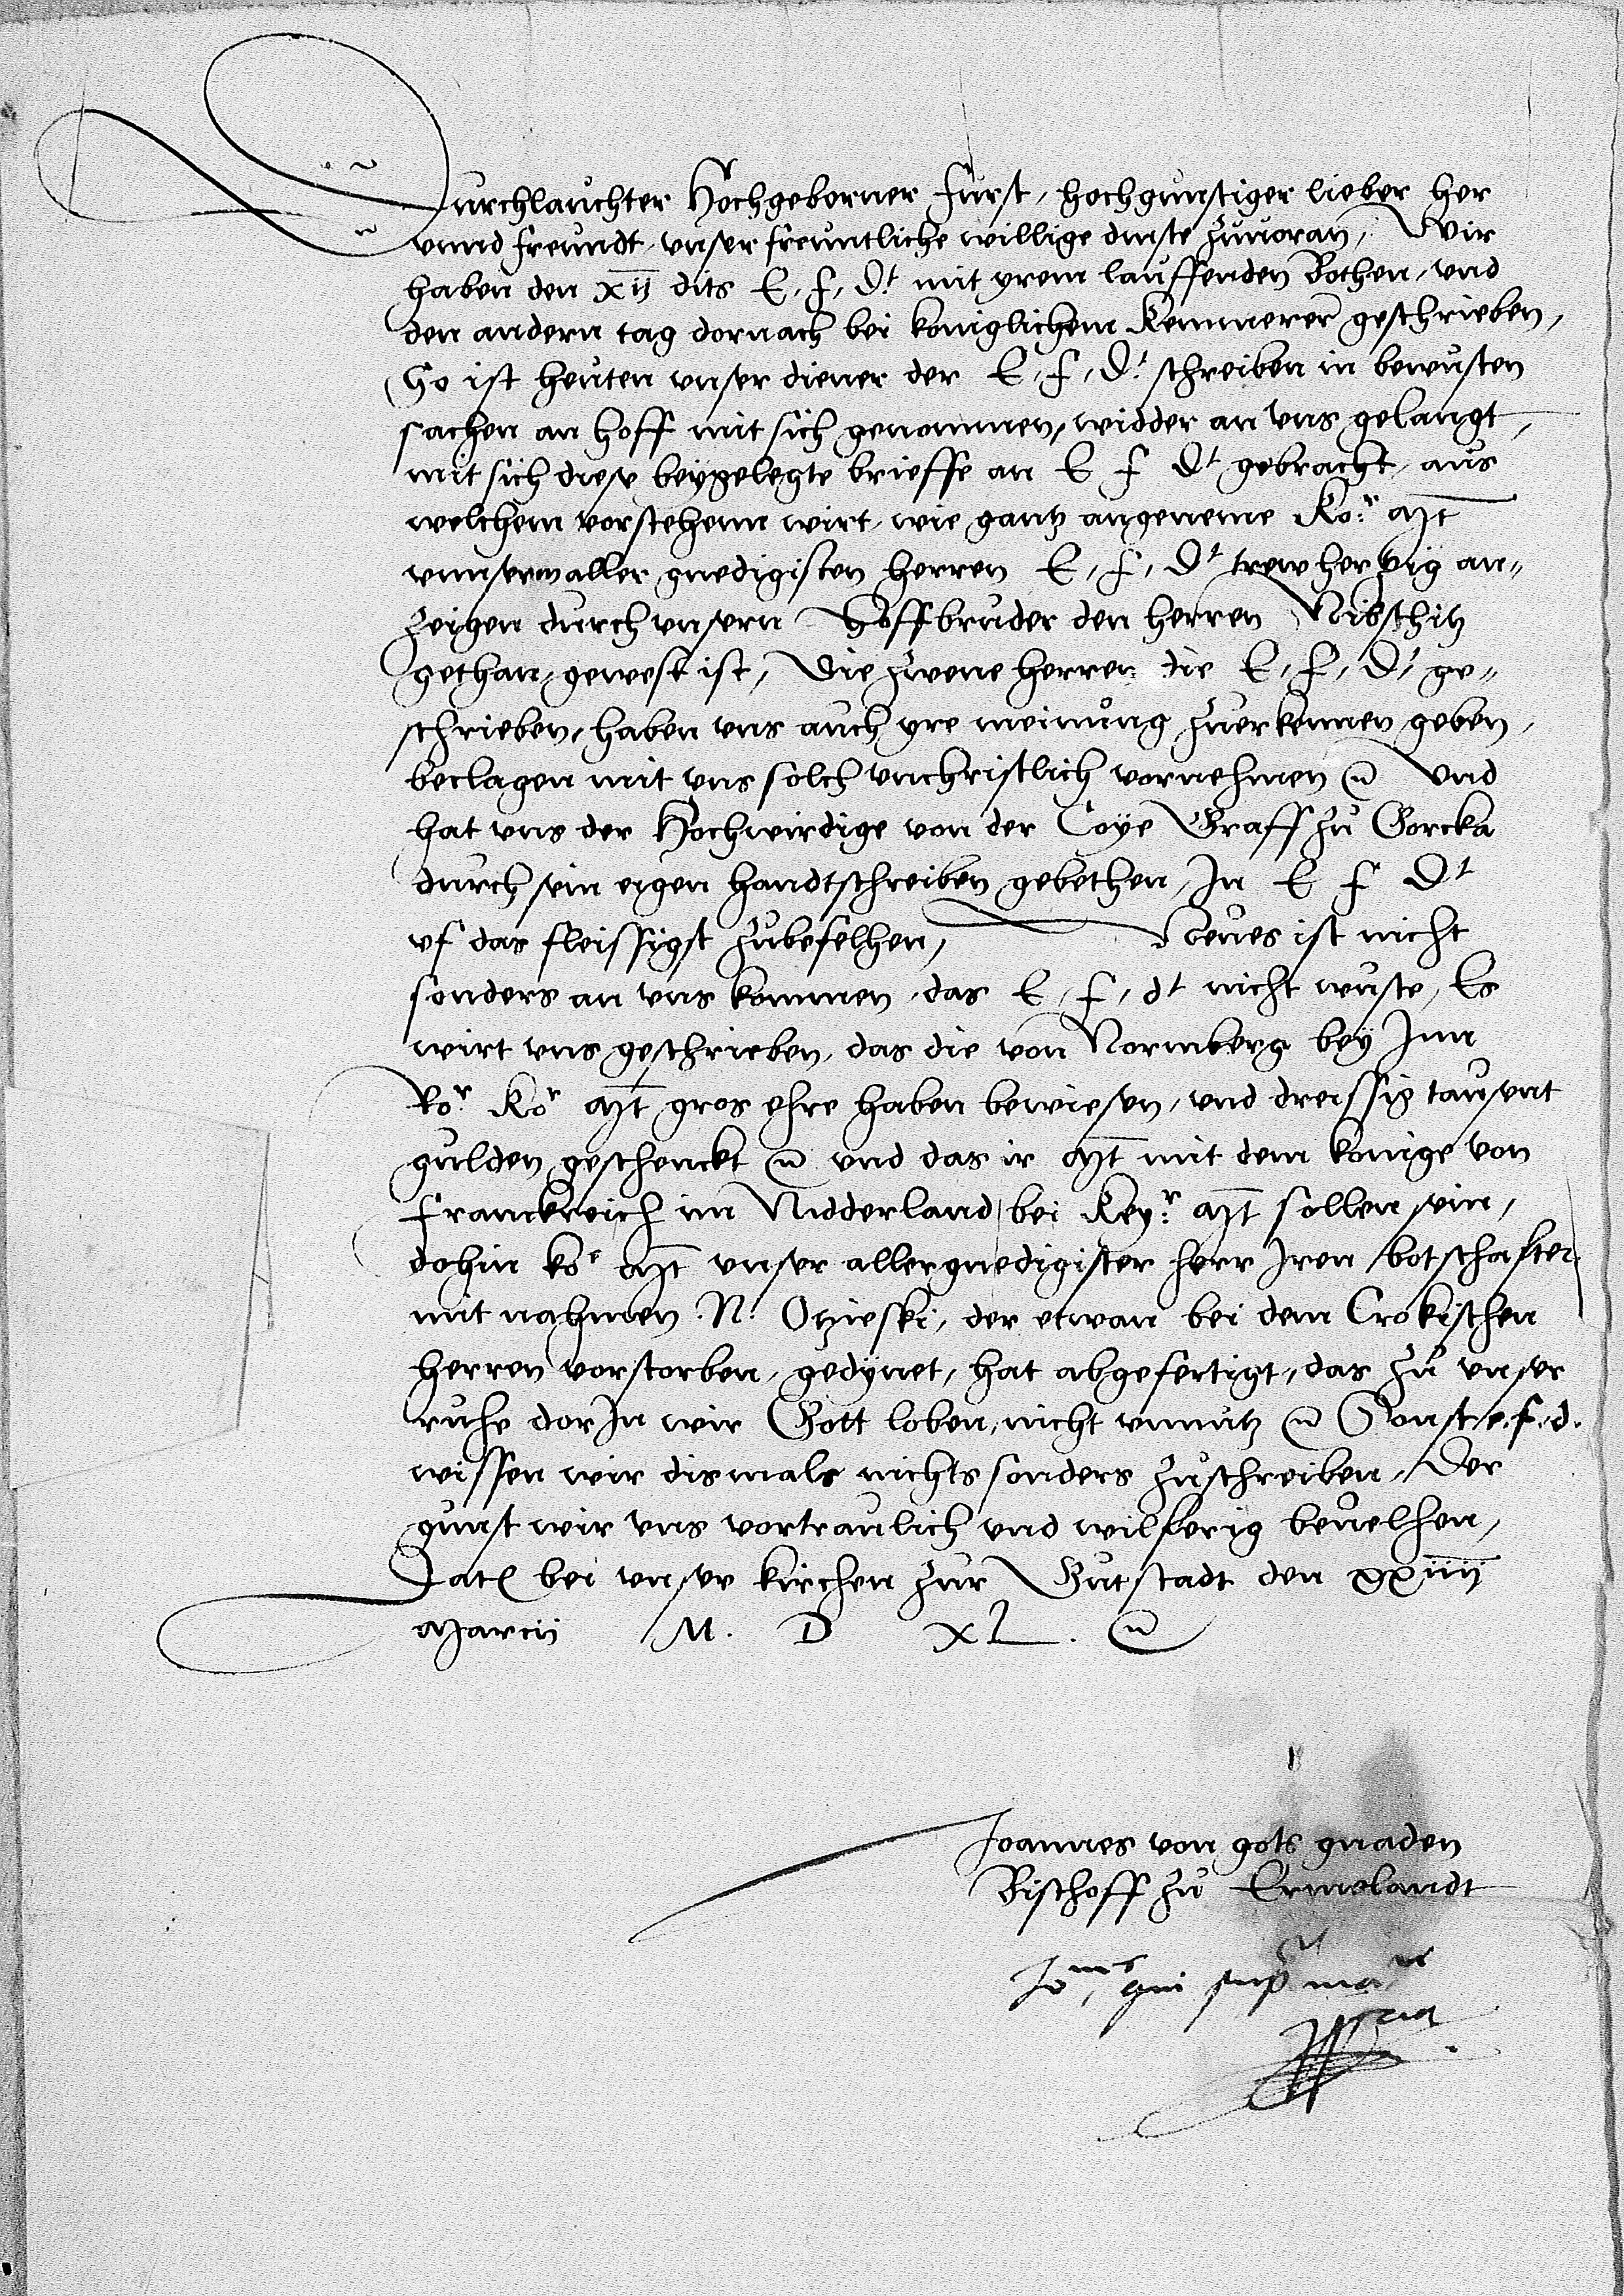 Durchlauchter Hochgeborner Furst, hochgunstiger lieber her
vnnd freundt, vnser freuntliche willige dinste zuuoran, Wir
haben den xij dits E, f, D.t mit yrem lauffenden Bothen, vnd
den andern tag dornach bei koniglichem Kemmerer geschrieben,
So ist heuten vnser diener der E, f, D.t schreiben in bewusten
sachen an hoff mit sich genommen, widder an vns gelangt,
mit sich diese beygelegte brieffe an E f Dt gebracht, aus
welchem vorstehenn wirt, wie gantz angeneme Ko.r Mt
vnnserm aller gnedigisten herren E, f, Dt trewhertzig an„
zeigen durch vnsern Hoffbruder den herren Nibschitz
gethan, gewest ist, Die zwene herren die E, f, Dt ge„
schrieben, haben vns auch yre meinung zuerkennen geben,
beclagen mit vns solch vnchristlich vornehmen etc Vnd
hat vns der Hochwirdige von der Coye Graff zu Gorcka
durch sein eigen handtschreiben gebethen, In E f Dt
vf das fleissigst zubefelhen, Neues ist nicht
sonders an vns kommen, das E, f, dt nicht wuste, Es
wirt vns geschrieben, das die von Normberg bey Irer
Ro.r Kor Mt gros ehre haben bewiesen, vnd dreissig tausent
gulden geschenckt etc vnd das ir Mt mit dem konige von
franckreich im Nidderland bei Key.r Mt sollen sein,
dohin kor Mt vnser allergnedigister herr Iren botschafter
mit nahmen N. Ozieski, der etwan bei dem Crokischen
herren vorstorben, gedynet, hat abgefertigt, das zu vnser
ruhe dorIn wir Gott loben, nicht vnnutz etc Sonst e.f.d.
wissen wir dismals nichts sonders zuschreiben, Der
gunst wir vns vortraulich vnd wilferig beuelhen,
Dat bei vnser kirchen zur Gutstadt den xxiiij
Marcii M. D XL. etc
Joannes von gots gnaden
Bischoff zu Ermelandt
qui